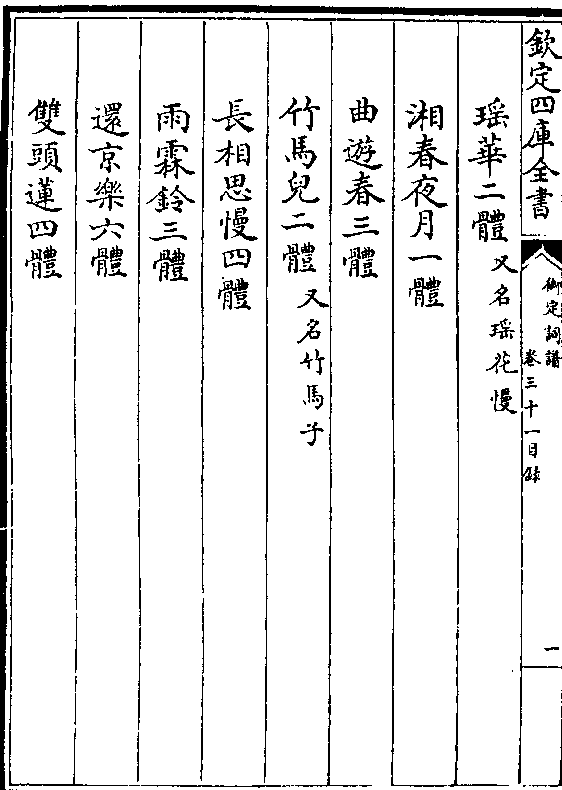 欽定四庫全書
御定詞譜
卷三十一目錄
一
瑶華二體 又名瑶花慢
湘春夜月一體
曲遊春三體
竹馬兒二體 又名竹馬子
長相思慢四體
雨霖鈴三體
還京樂六體
雙頭蓮四體